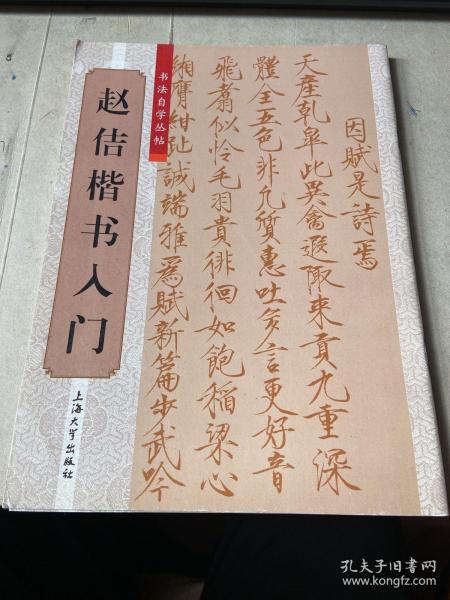 书法自学丛帖
赵佶楷书入门
上海大学出版社
因賦是詩焉
天產乾皋此異禽遐陬来貢九重深
體全五色非凡質惠吐多言更好音
飛翥似怜毛羽貴徘徊如飽稻粱心
緗膺紺趾誠端雅爲賦新篇步武吟
孔夫子旧书网
www.kongfz.com